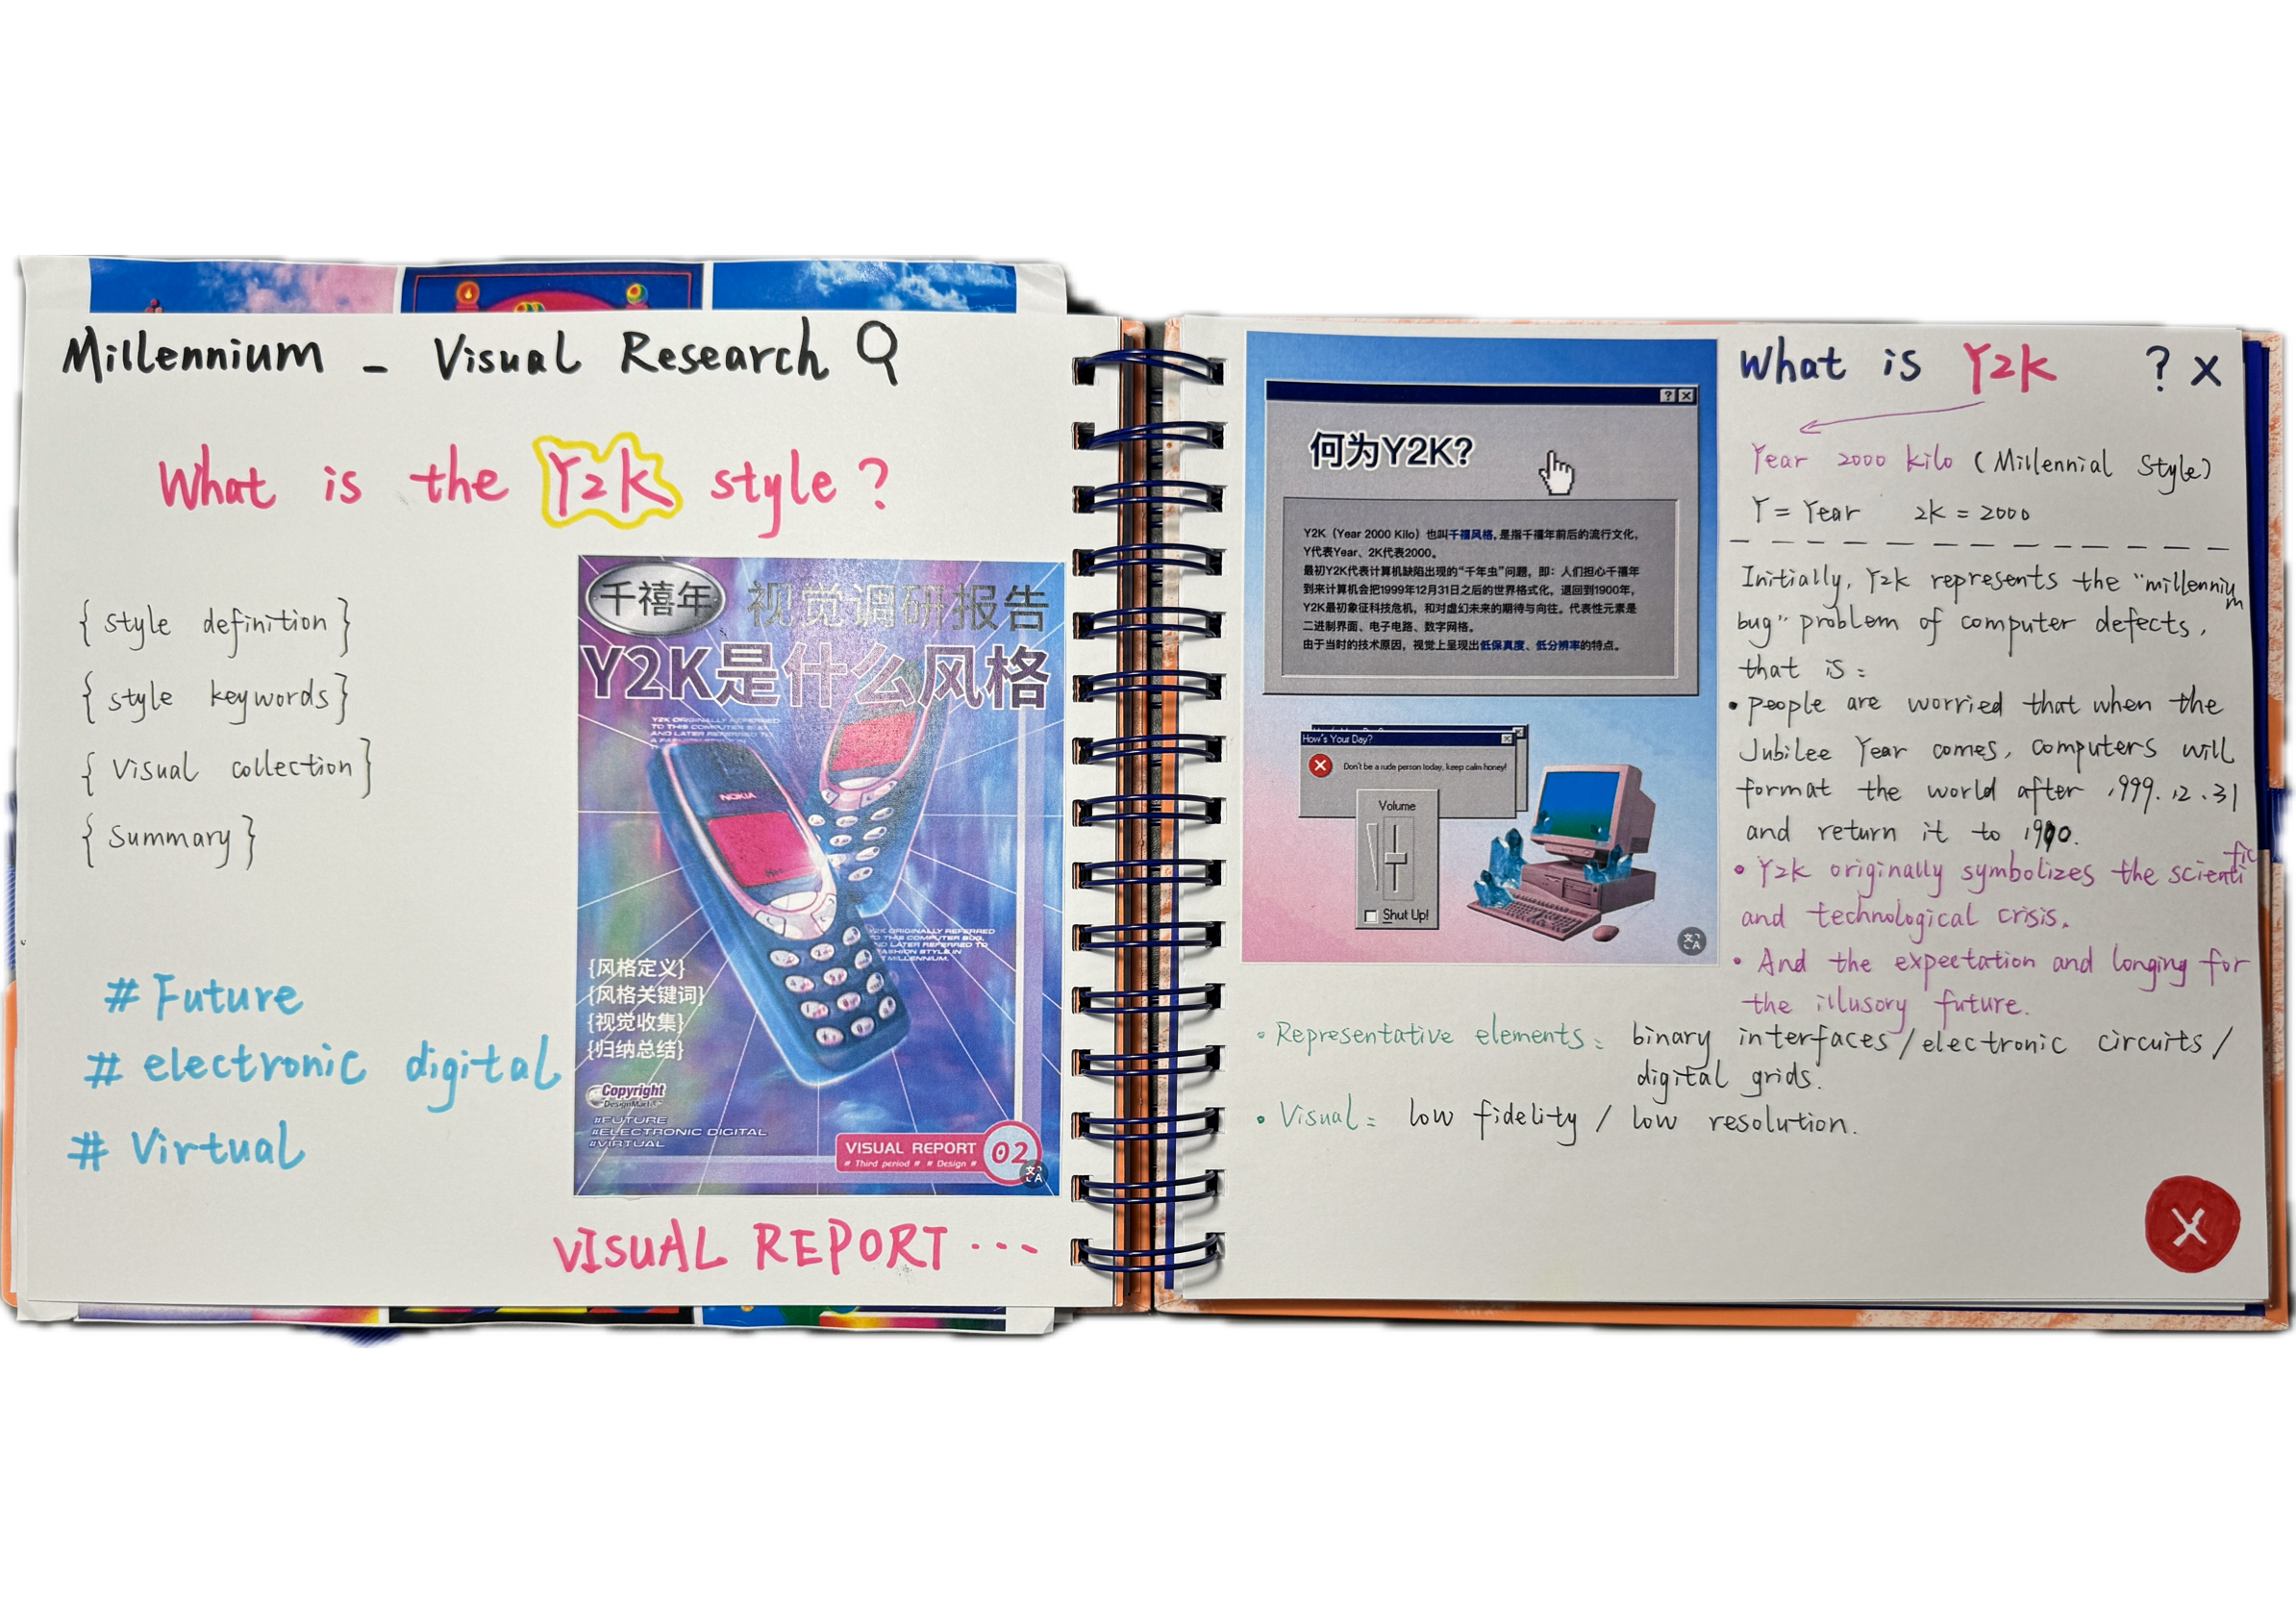 Millennium - Visual Research
What is the Y2K style?
{ style definition }
{ style keywords }
{ Visual collection }
{ Summary }
# Future
# electronic digital
# Virtual
千禧年 视觉调研报告
Y2K是什么风格
Y2K ORIGINALLY REFERRED
TO THIS COMPUTER BUG,
AND LATER REFERRED TO
NOKIA
Y2K ORIGINALLY REFERRED
TO THIS COMPUTER BUG,
AND LATER REFERRED TO
FASHION STYLE IN
MILLENNIUM.
{风格定义}
{风格关键词}
{视觉收集}
{归纳总结}
Copyright
#FUTURE
#ELECTRONIC DIGITAL
#VIRTUAL
VISUAL REPORT 02
# Third period # # Design #
VISUAL REPORT ...
? X
何为Y2K?
Y2K（Year 2000 Kilo）也叫千禧风格，是指千禧年前后的流行文化，
Y代表Year、2K代表2000。
最初Y2K代表计算机缺陷出现的“千年虫”问题，即：人们担心千禧年
到来计算机会把1999年12月31日之后的世界格式化，退回到1900年，
Y2K最初象征科技危机，和对虚幻未来的期待与向往。代表性元素是
二进制界面、电子电路、数字网格。
由于当时的技术原因，视觉上呈现出低保真度、低分辨率的特点。
How's Your Day?
Don't be a rude person today, keep calm honey!
Volume
Shut Up!
What is Y2K ? X
Year 2000 kilo (Millennial Style)
Y = Year 2K = 2000
Initially, Y2K represents the "millennium
bug" problem of computer defects,
that is:
• people are worried that when the
Jubilee Year comes, computers will
format the world after 1999.12.31
and return it to 1900.
• Y2K originally symbolizes the scientific
and technological crisis.
• And the expectation and longing for
the illusory future.
• Representative elements: binary interfaces / electronic circuits /
digital grids.
• Visual: low fidelity / low resolution.
X